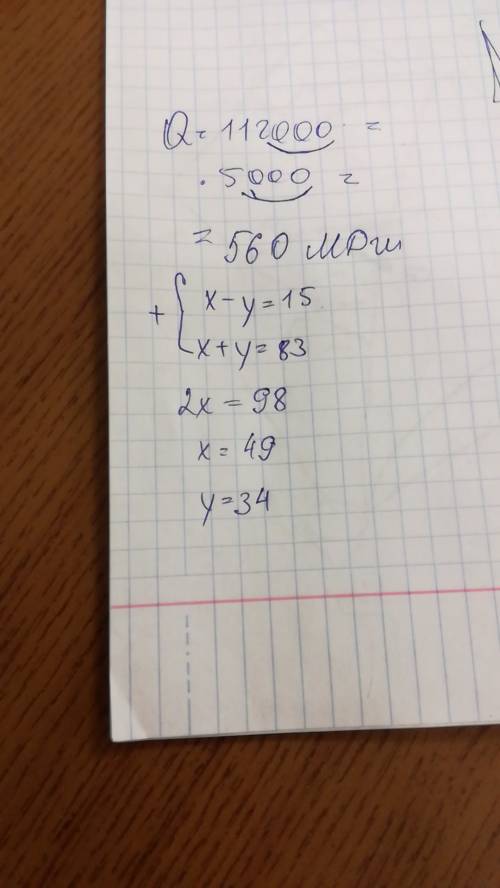 Q = 112000 =
· 5000 =
= 560 МДж
+ { x - y = 15
x + y = 83
2x = 98
x = 49
y = 34